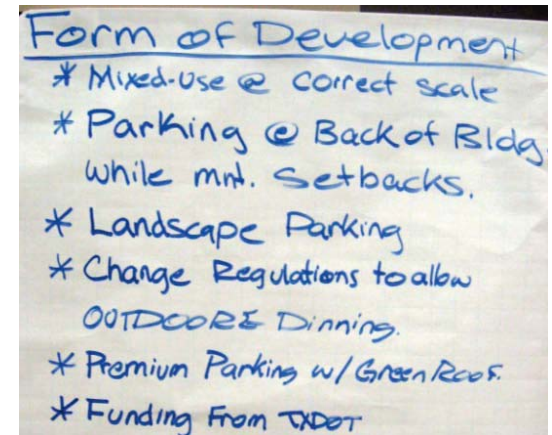 Form of Development
* Mixed-Use @ correct scale
* Parking @ Back of Bldg.
while mnt. Setbacks.
* Landscape Parking
* Change Regulations to allow
OUTDOORE Dinning.
* Premium Parking w/ Green Roof.
* Funding From TXDOT